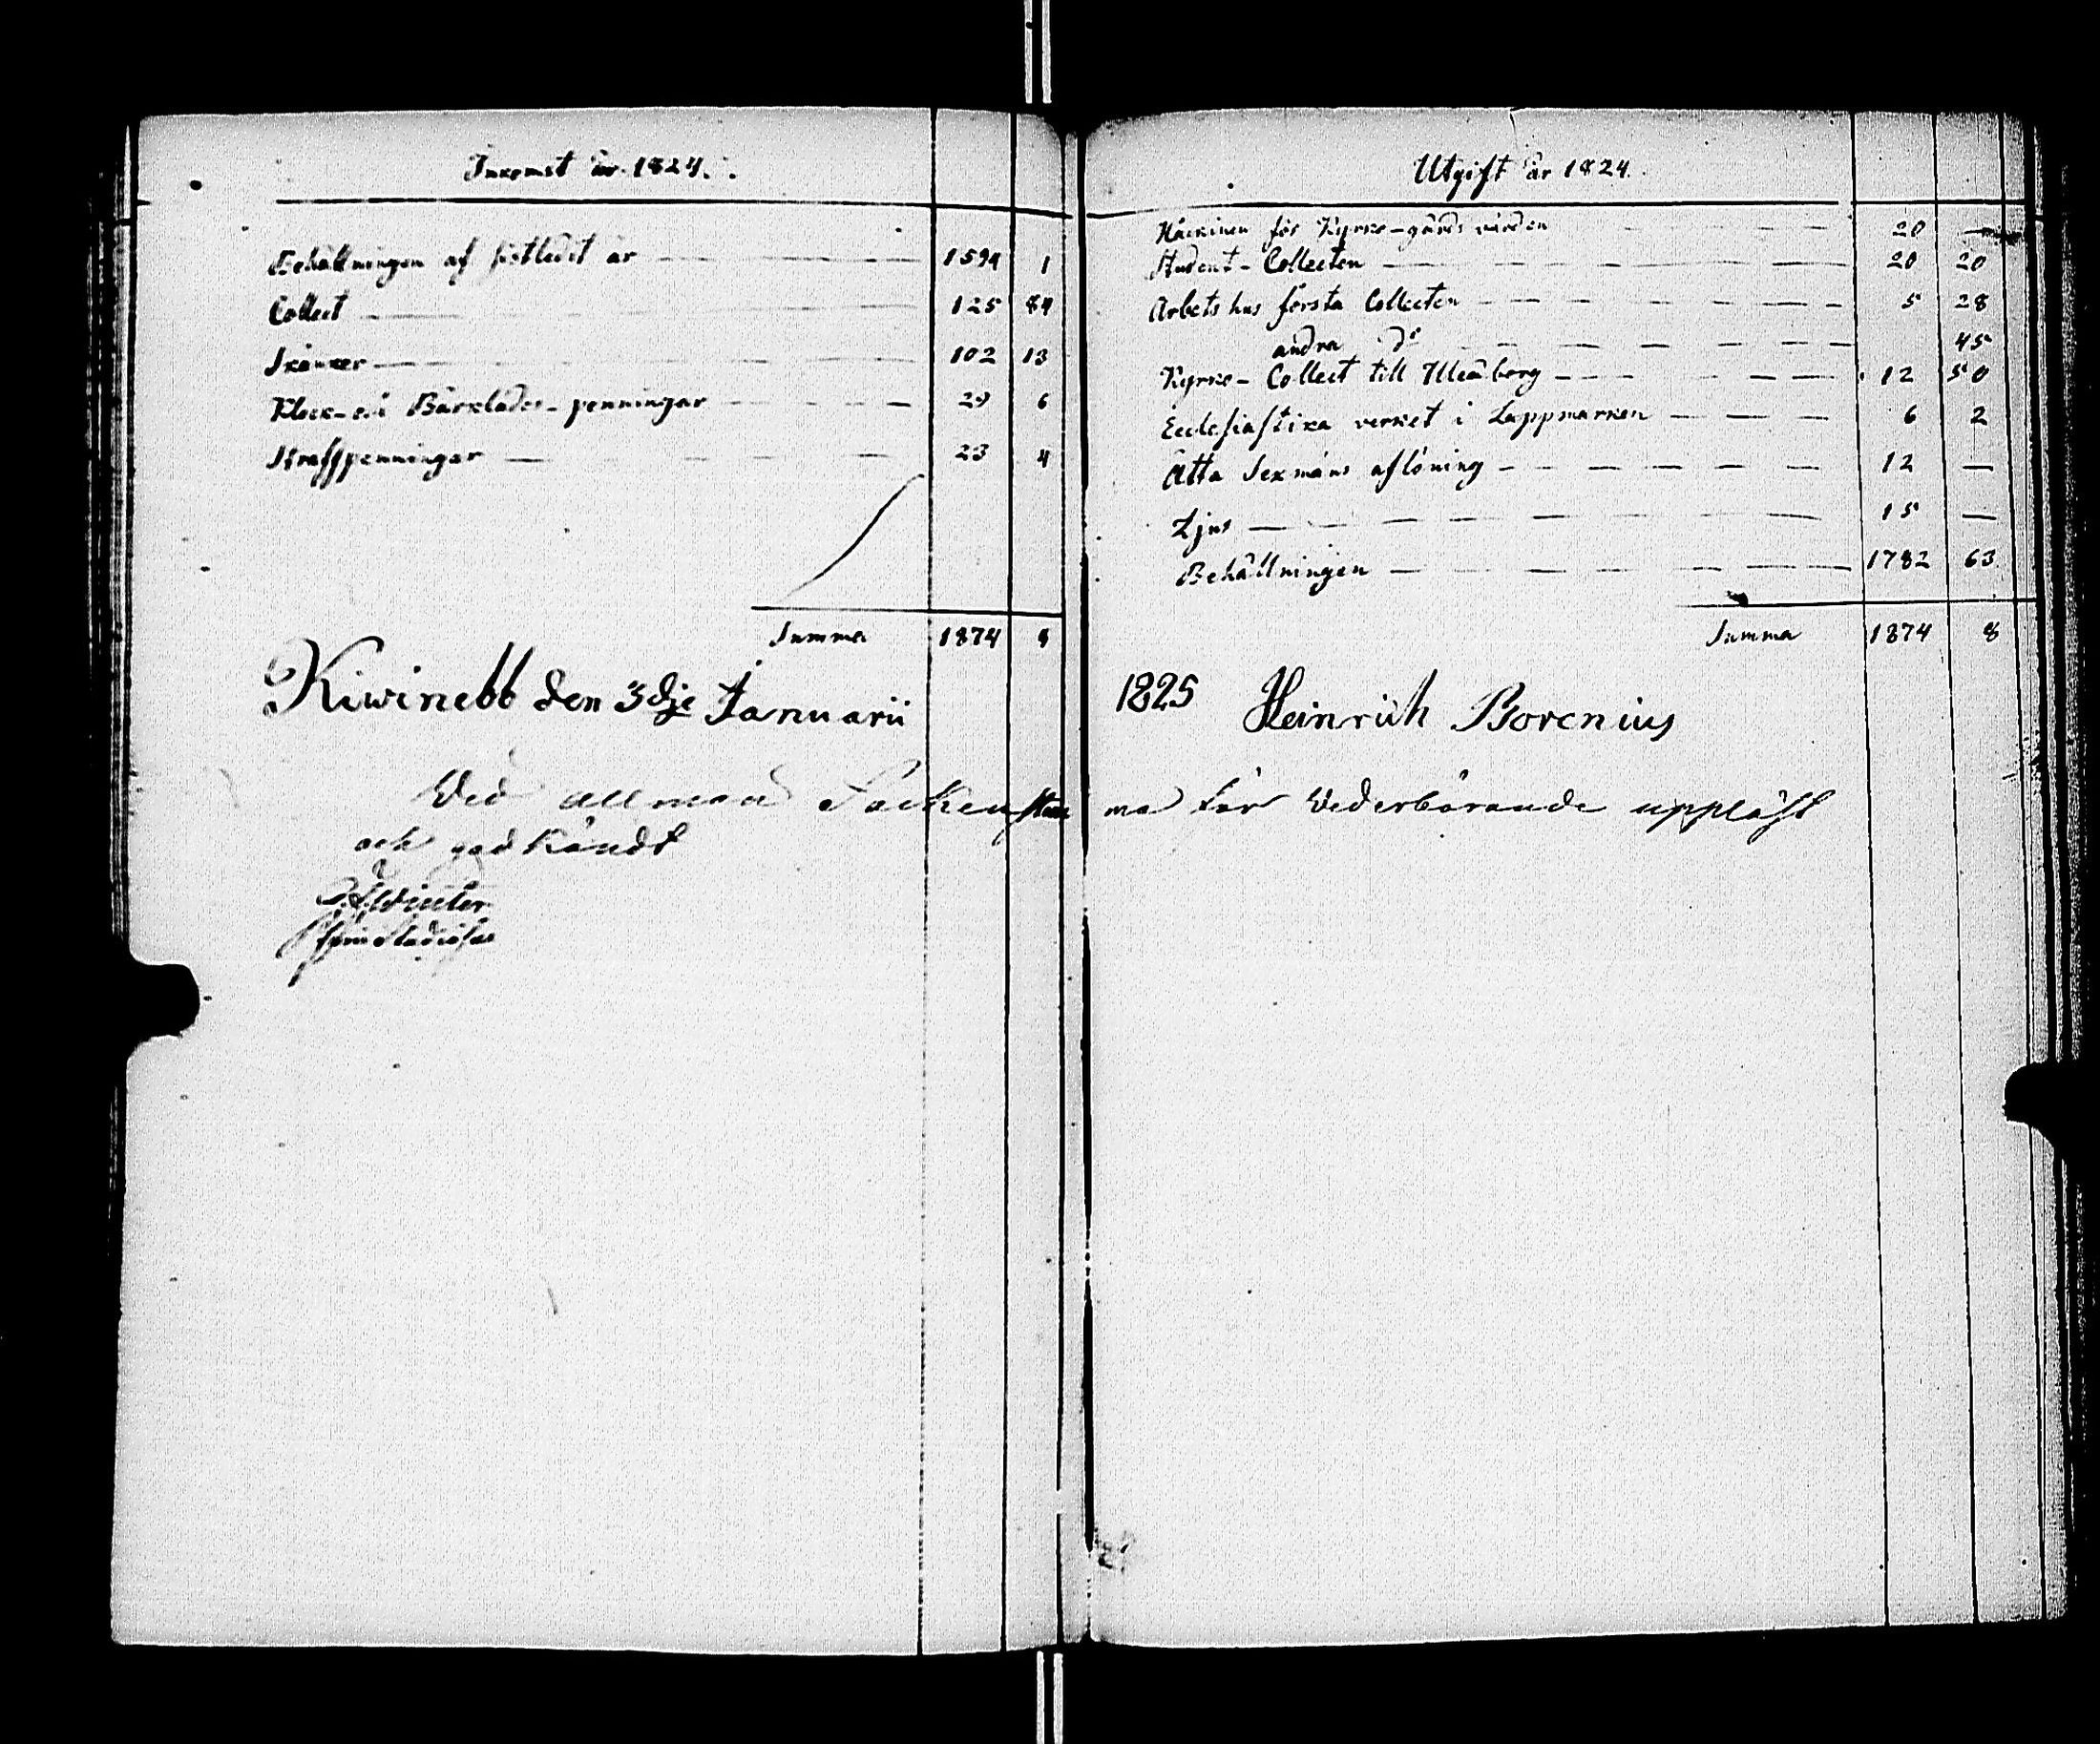 Inkomst år 1824.
Behållningen af sistledit år 1594 1
Collect 125 84
Skänker 102 13
Klock- och Bårklädes-penningar 29 6
Straffpenningar 23 4
Summa 1874 8
Kiwinebb den 3dje Januarii
Utgift år 1824.
för Kyrko-gårds vården 20 —
Student-Collecten 20 20
Arbets hus första Collecten 5 28
andra do 45
Kyrko-Collect till Uleåborg 12 50
Ecclesiastika verket i Lappmarken 6 2
Åtta Sexmäns aflöning 12 —
Ljus 15 —
Behållningen 1782 63
Summa 1874 8
1825 Heinrich Borenius
Wid allmän Sockenstämma för Wederbörande uppläst
och godkändt
Winter